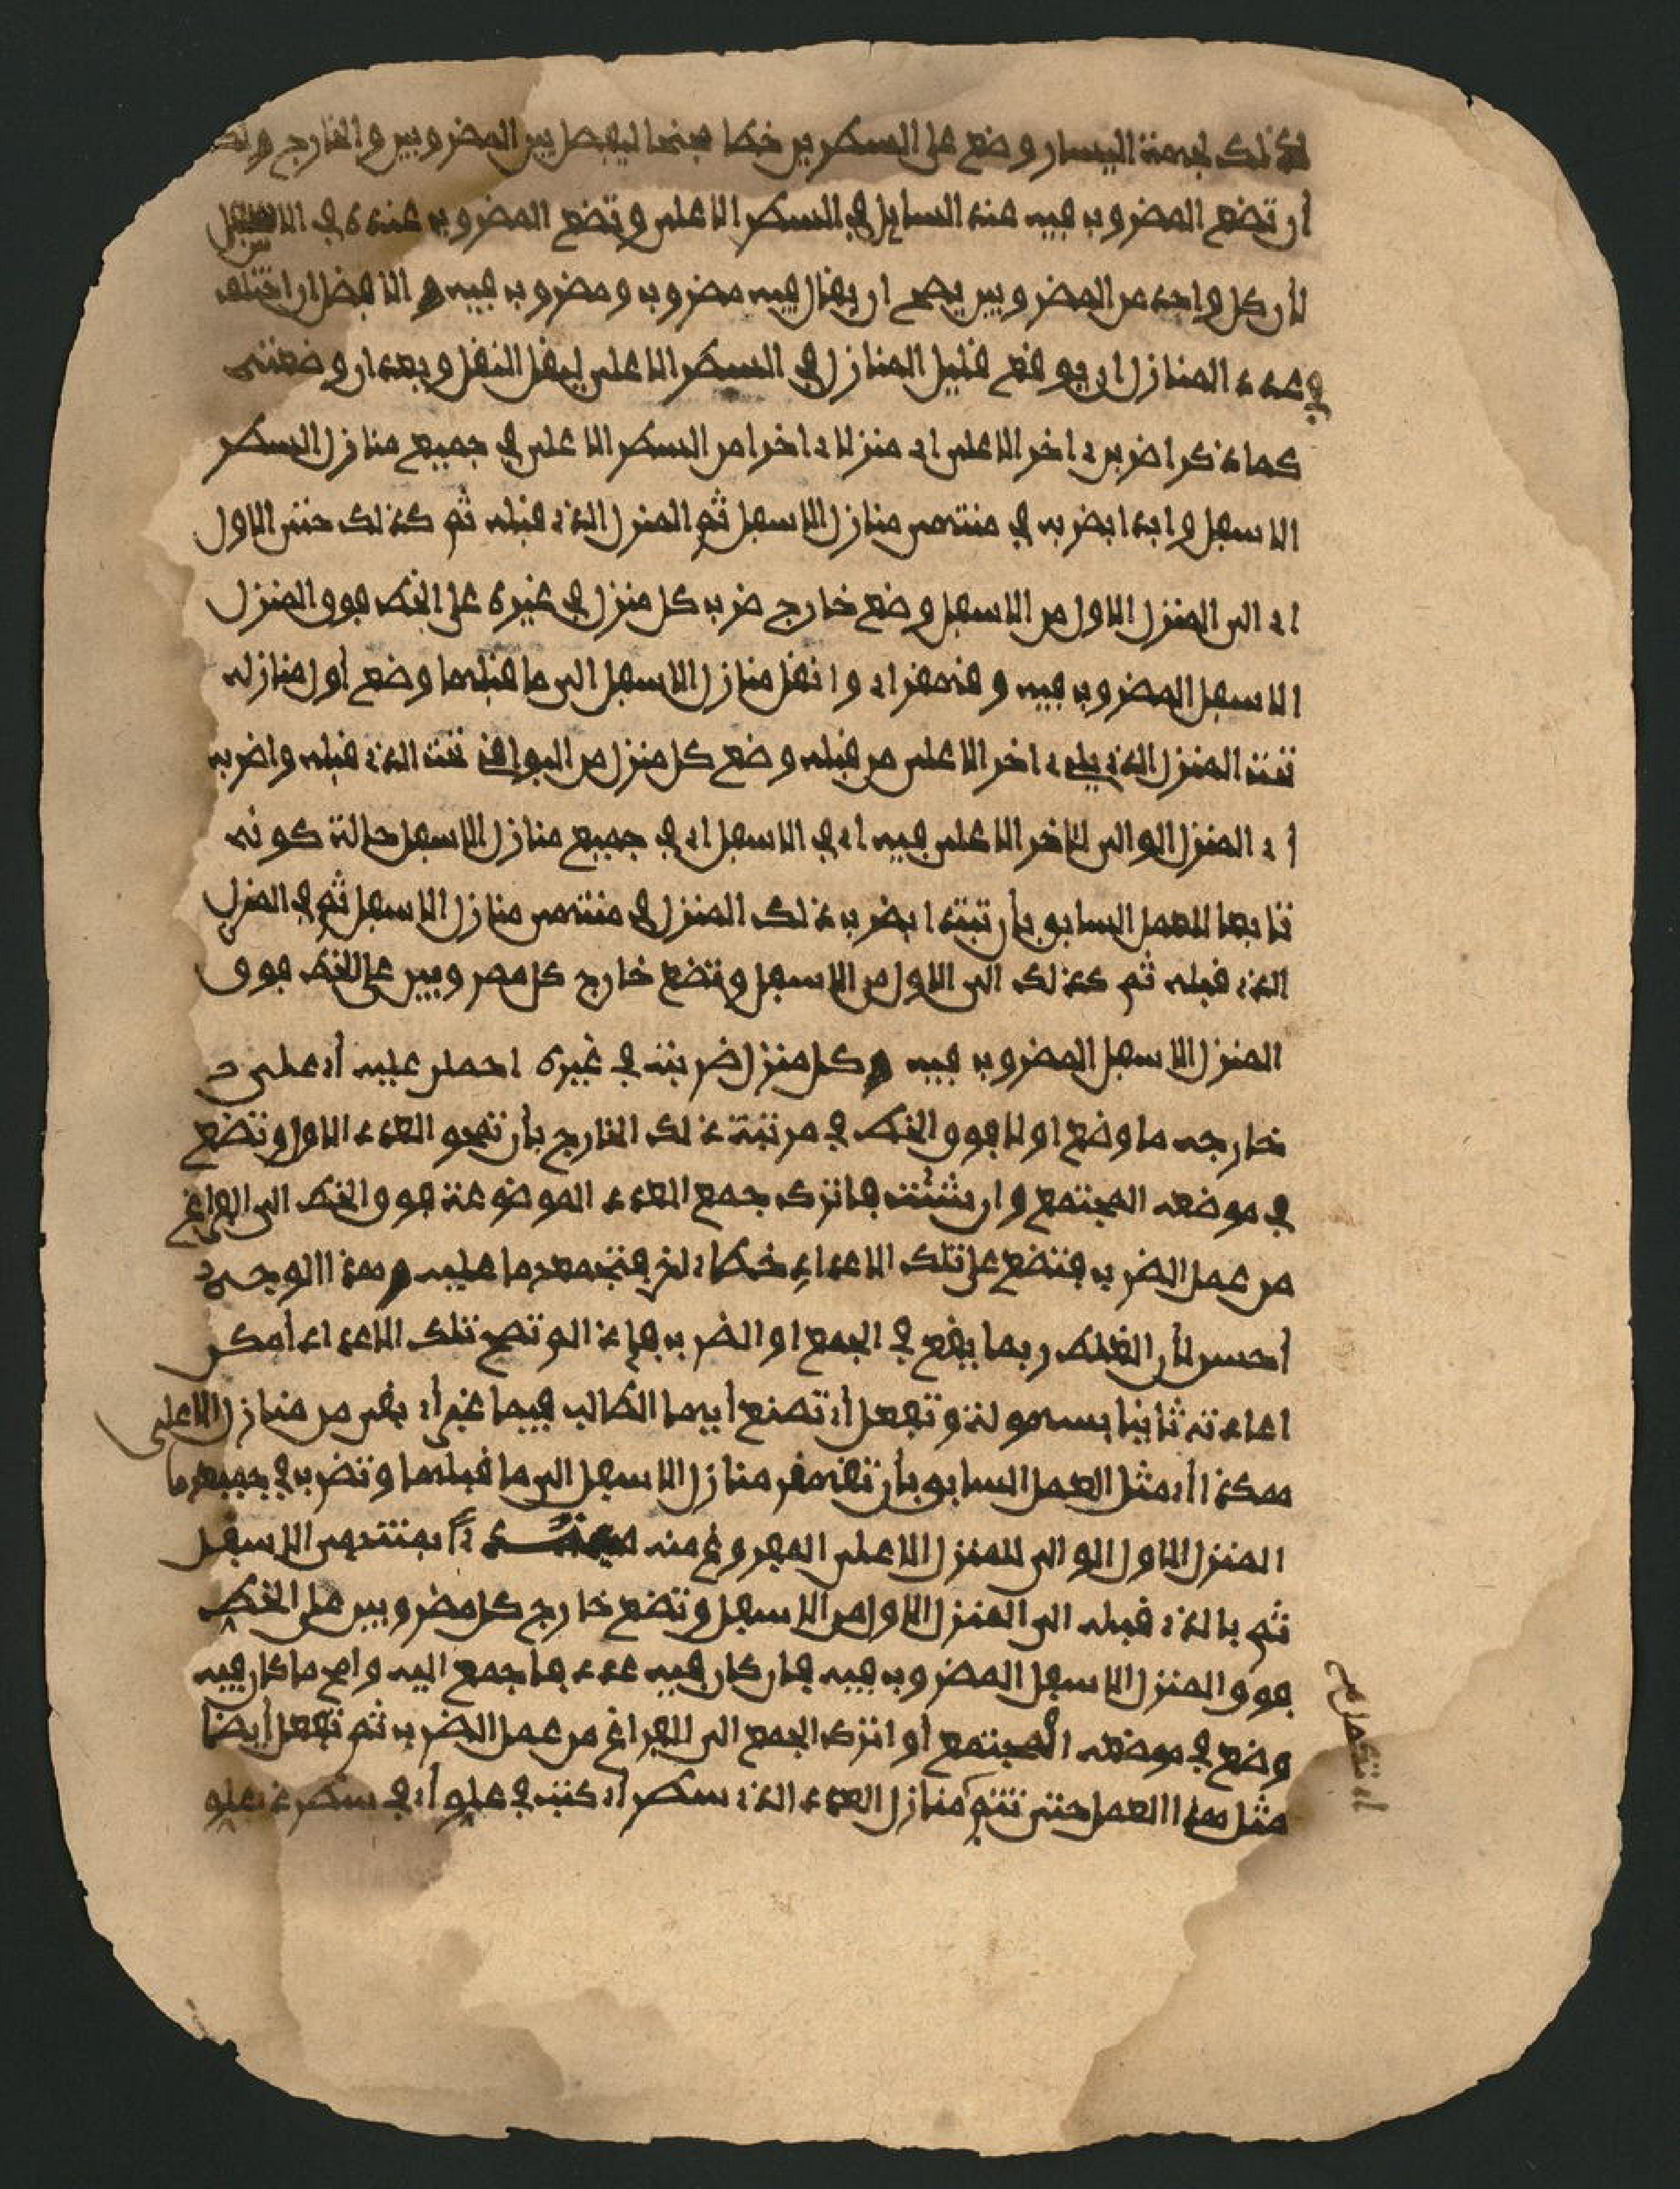 كذلك لجهة اليسار وضع على السطرين خطا عرضا ليفصل بين المضروبين والخارج ولك
أن تضع المضروب فيه عند السايل في السطر الاعلى وتضع المضروب عنده في الاسفل
لأن كل واحد من المضروبين يصح ان يقال فيه مضروب ومضروب فيه والافضل ان اختلف
في عدد المنازل ان يوقع قليل المنازل في السطر الاعلى ليقل النقل وبعد ان وضعتهى
كما ذكر اضرب ءاخر الاعلى اى منزلا ءاخرا من السطر الاعلى في جميع منازل السطر
الاسفل وابدا بضربه في منتهى منازل الاسفل ثم المنزل الذى قبله ثم كذلك حتى الاول
اى الى المنزل الاول من الاسفل وضع خارج ضرب كل منزل في غيره على الخط فوق المنزل
الاسفل المضروب فيه وقهقر اى وانقل منازل الاسفل الى ما قبلها وضع أول منازله
تحت المنزل الذى يلى ءاخر الاعلى من قبله وضع كل منزل من البواقى تحت الذى قبله واضرب
اى المنزل الوالى لئاخر الاعلى فيه اى في الاسفل اى في جميع منازل الاسفل حالة كونه
تابعا للعمل السابق بأن تبتدا بضرب ذلك المنزل في منتهى منازل الاسفل ثم في المنزل
الذى قبله ثم كذلك الى الاول من الاسفل وتضع خارج كل مضروبين على الخط فوق
المنزل الاسفل المضروب فيه وكل منزل ضربته في غيره احمل عليه أى على
خارجه ما وضع اولا فوق الخط في مرتبة ذلك الخارج بأن تمحو العدد الاول وتضع
في موضعه المجتمع وان شئت فاترك جمع العدد الموضوعة فوق الخط الى الفراغ
من عمل الضرب فتضع على تلك الاعداد خطا فتجمع ما عليه وهذا الوجه
أحسن لأن الغلط ربما يقع في الجمع او الضرب فاذا لم تمح تلك الاعداد أمكن
اعادته ثانيا بسهولة وتفعل أى تصنع أيها الطالب فيما غبر أى بقى من منازل الاعلى
هكذا أى مثل العمل السابق بأن تقهقر منازل الاسفل الى ما قبلها وتضرب في جميع ما
المنزل الاول الوالى للمنزل الاعلى المفروغ منه بمنتهى الاسفل
ثم بالذى قبله الى المنزل الاول من الاسفل وتضع خارج كل مضروبين على الخط
فوق المنزل الاسفل المضروب فيه فان كان فيه عدد فاجمع اليه وامح ما كان فيه
وضع في موضعه المجتمع أو اترك الجمع الى الفراغ من عمل الضرب ثم تفعل أيضا
مثل هذا العمل حتى تتم منازل العدد الذى سطر أى كتب في علو أى في سطر ذى علو
اى تكمل